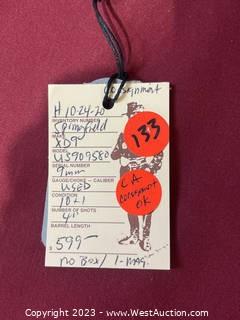 consignment
H 10-24-20
INVENTORY NUMBER
Springfield
MAKE
XD9
MODEL
US909580
SERIAL NUMBER
9mm
GAUGE/CHOKE - CALIBER
USED
CONDITION
10+1
NUMBER OF SHOTS
4"
BARREL LENGTH
$599-
NO BOX / 1-MAG.
133
CA
consignment
OK
Copyright 2023 - WestAuction.com